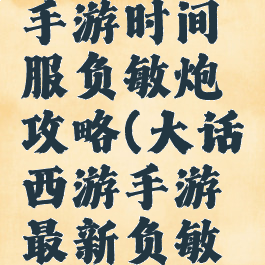 手游时间
服负敏炮
攻略(大话
西游手游
最新负敏